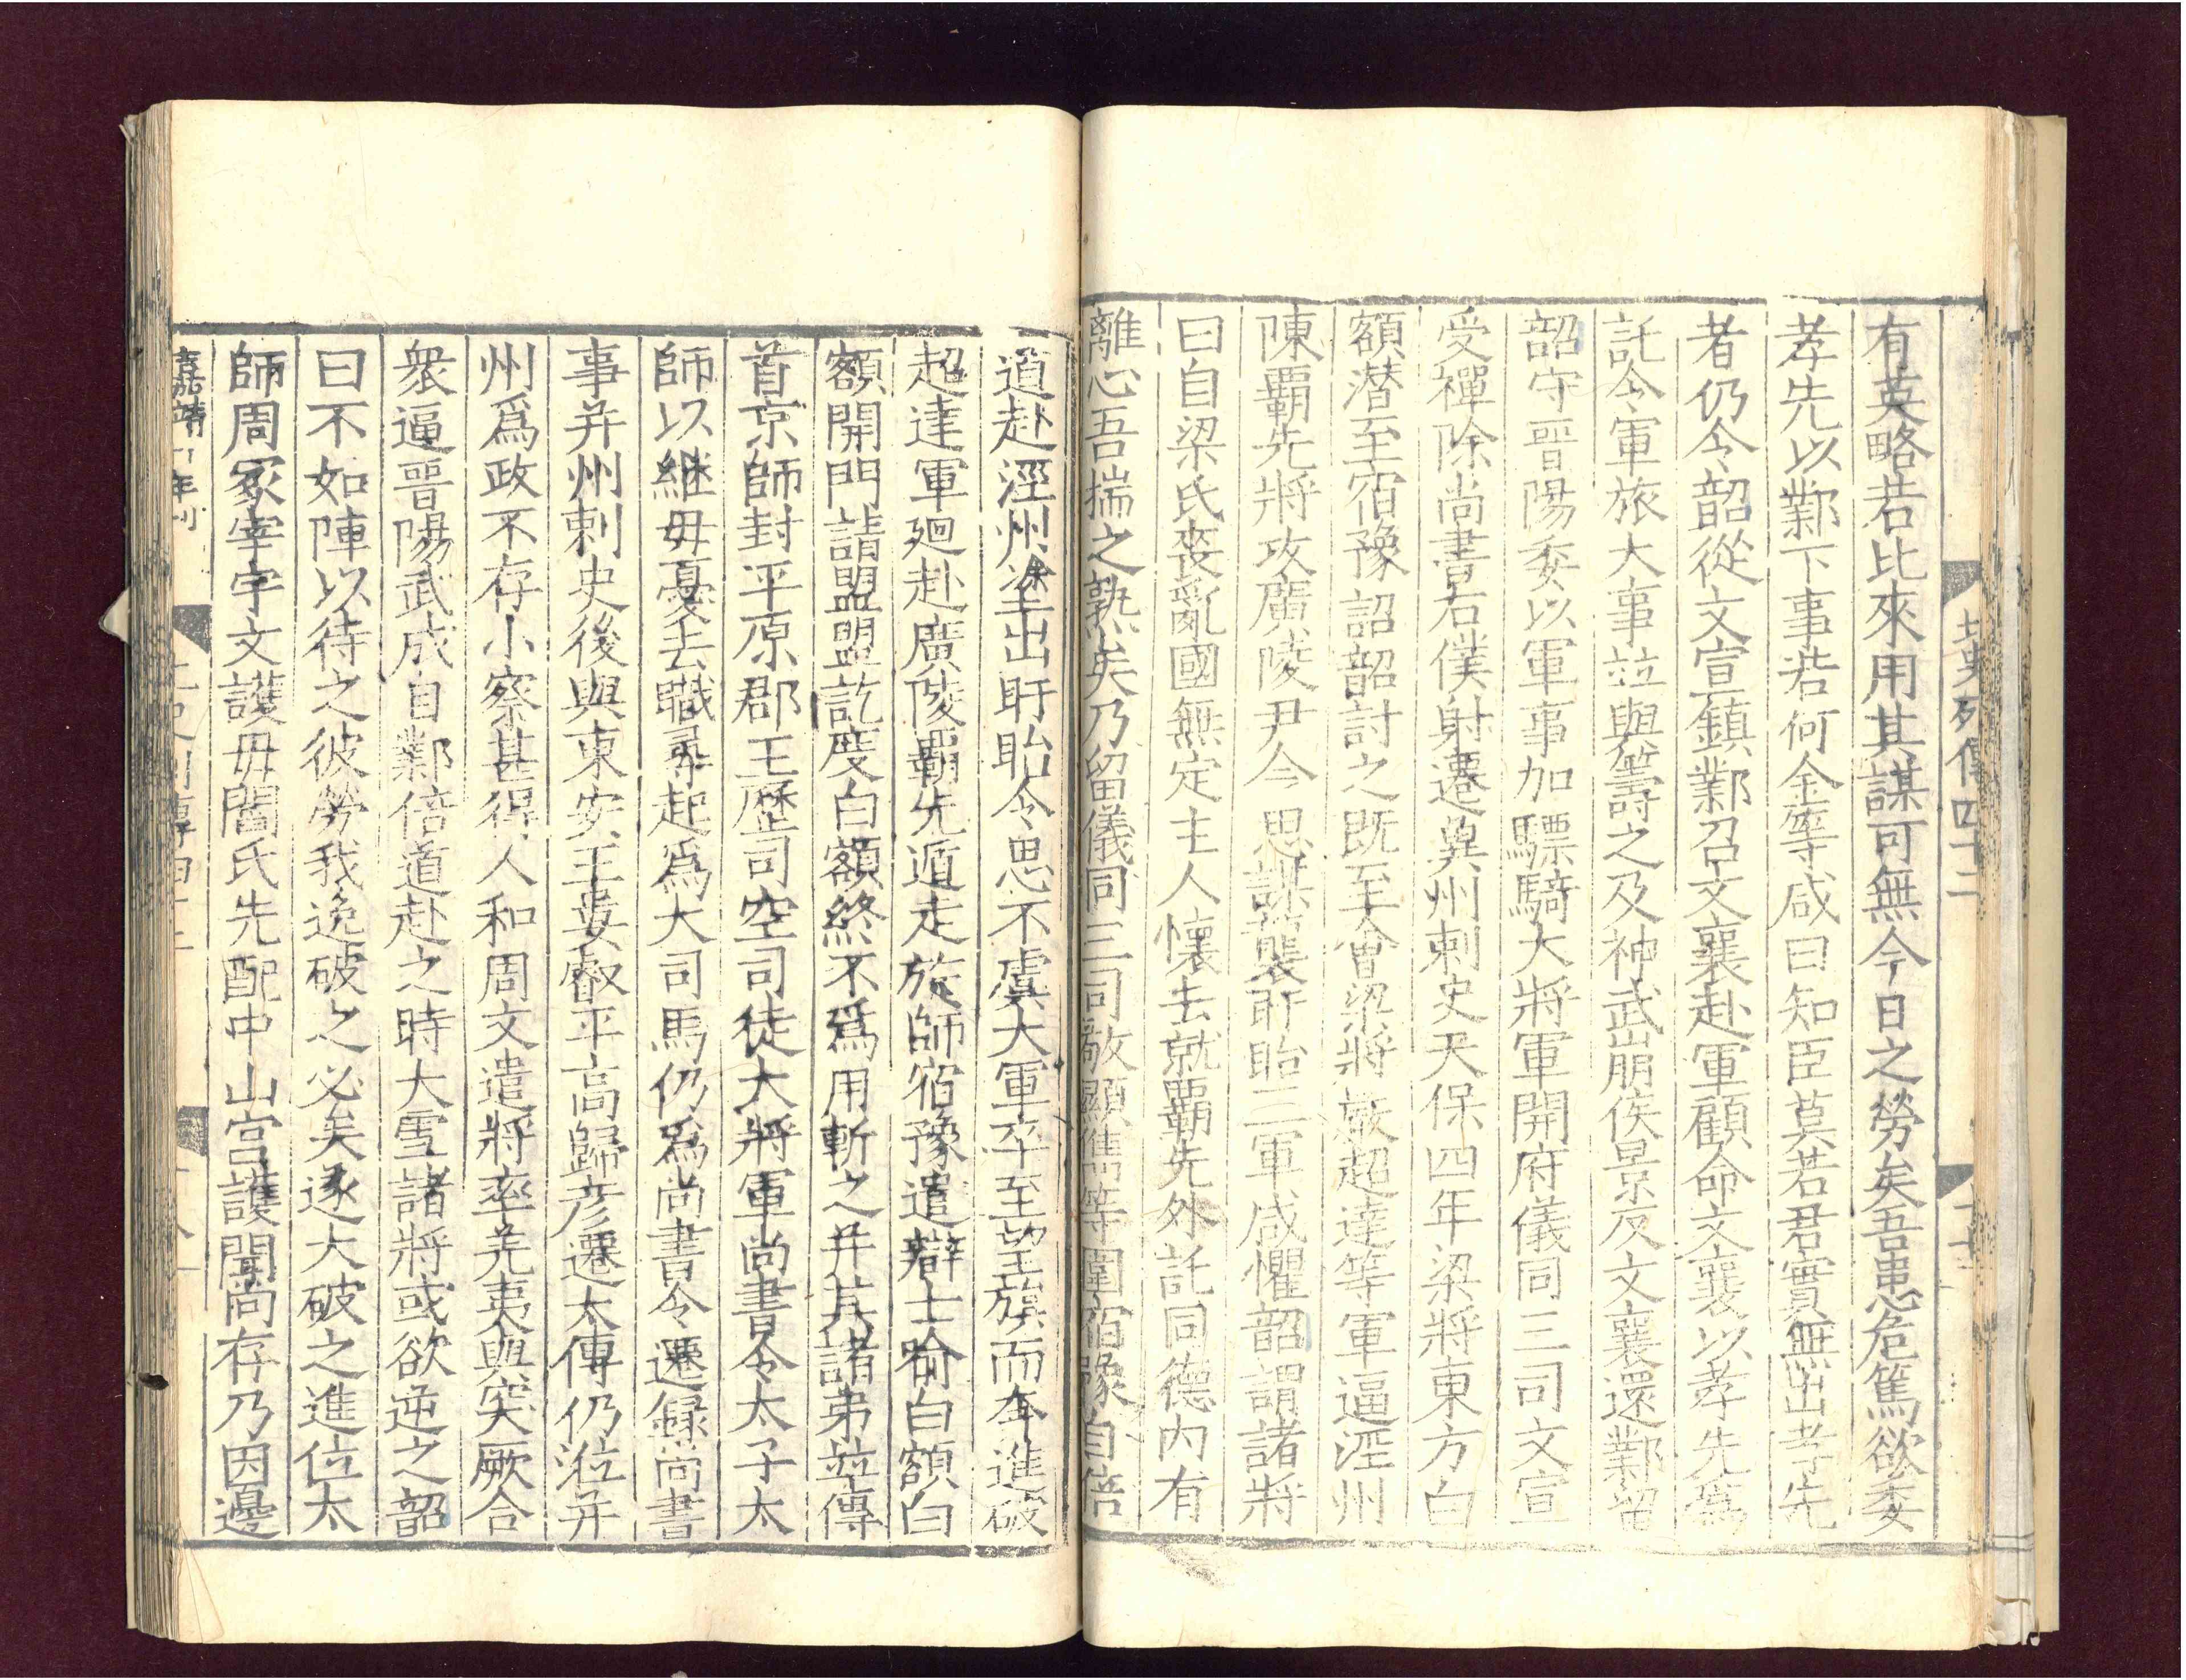 北史列傳四十二
十七
有英略若比來用其謀可無今日之勞矣吾患危篤欲委
孝先以鄴下事若何金等咸曰知臣莫若君實無出孝先
者仍令韶從文宣鎮鄴召文襄赴軍顧命文襄以孝先爲
託令軍旅大事竝與籌之及神武崩侯景反文襄還鄴留
韶守晉陽委以軍事加驃騎大將軍開府儀同三司文宣
受禪除尚書右僕射遷冀州刺史天保四年梁將東方白
額潜至宿豫詔韶討之既至會梁將嚴超達等軍逼涇州
陳霸先將攻廣陵尹令思謀襲盱眙三軍咸懼韶謂諸將
曰自梁氏喪亂國無定主人懷去就霸先外託同德內有
離心吾揣之熟矣乃留儀同三司敬顯儁等圍宿豫自倍
道赴涇州塗出盱眙令思不虞大軍卒至望旗而奔進破
超達軍廻赴廣陵霸先遁走旋師宿豫遣辯士喻白額白
額開門請盟盟訖度白額終不爲用斬之并其諸弟竝傳
首京師封平原郡王歷司空司徒大將軍尚書令太子太
師以繼毋憂去職尋起爲大司馬仍爲尚書令遷録尚書
事并州刺史後與東安王婁叡平高歸彦遷太傅仍涖并
州爲政不存小察甚得人和周文遣將率羌夷與突厥合
衆逼晉陽武成自鄴倍道赴之時大雪諸將或欲逆之韶
曰不如陣以待之彼勞我逸破之必矣遂大破之進位太
師周冢宰宇文護毋閻氏先配中山宮護聞尚存乃因邊
嘉靖 年刊
列傳四十二